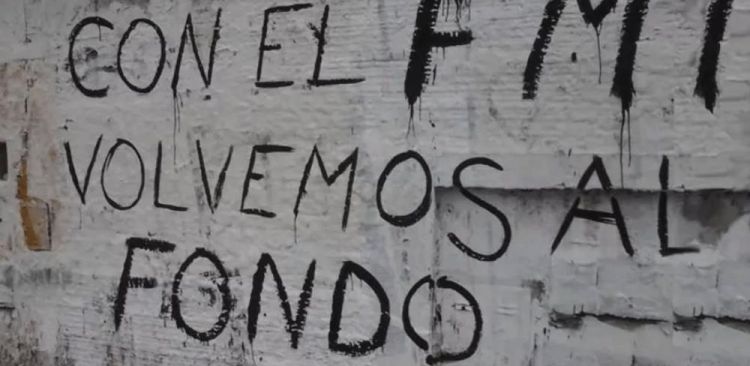 CON EL FMI
VOLVEMOS AL
FONDO